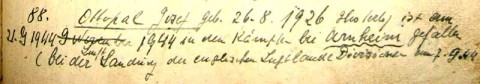 88. Ottopal Josef geb. 26.8.1926 ist am
21.9.1944 1944 in den Kämpfen bei Arnheim gefallen
( bei der Landung der englischen Luftlande Divisionen am 7.9.44